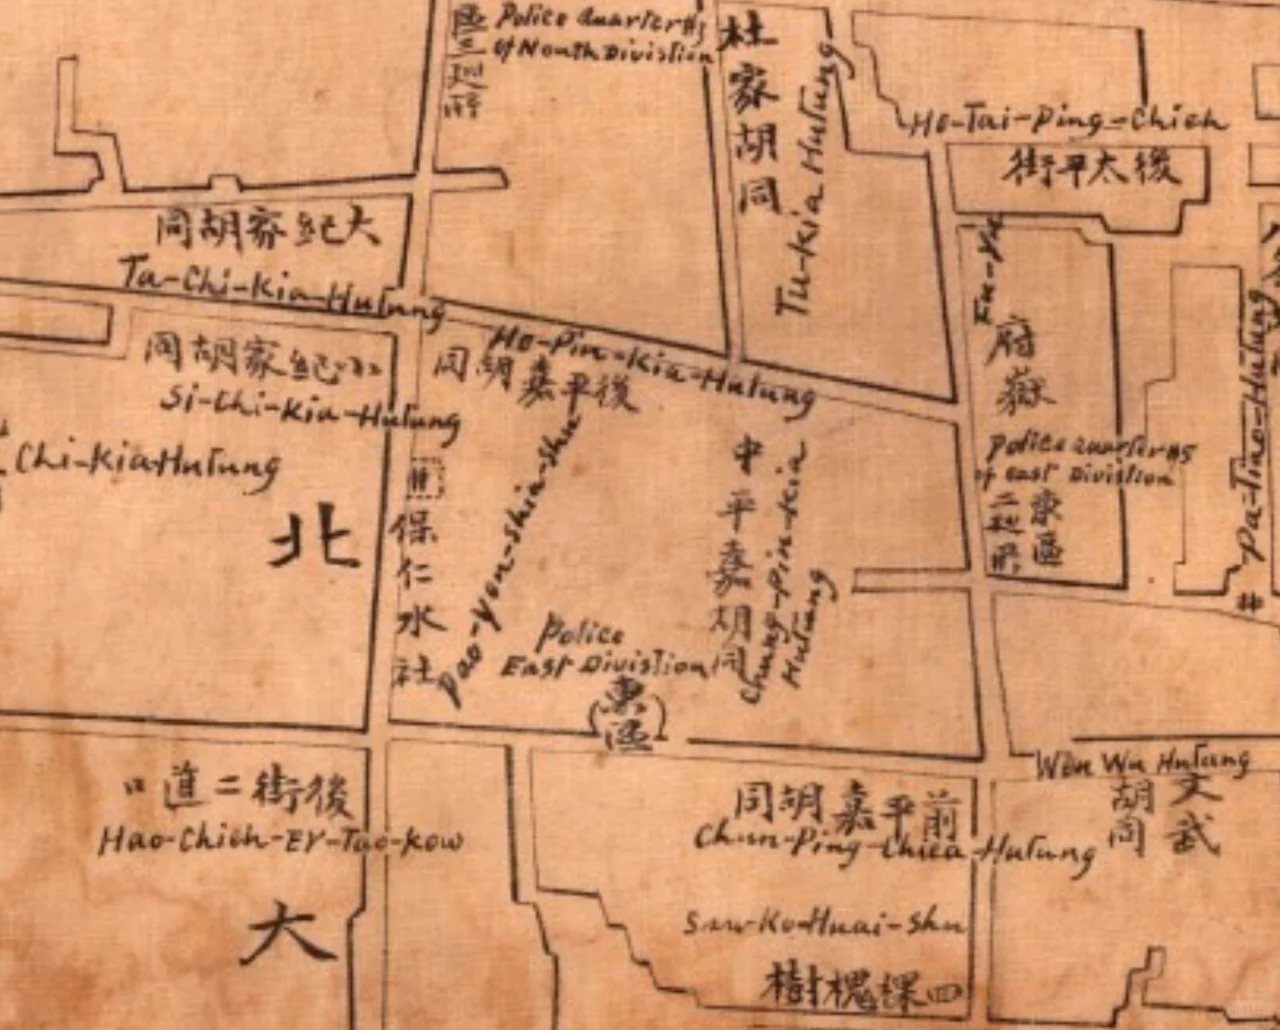 Police Quarterss
of North Division
杜家胡同
Tu-Kia Hutung
Ho-Tai-Ping-Chieh
街平太後
同胡家紀大
Ta-Chi-Kia-Hutung
Fu-Yu
Ho-Pin-Kia-Hutung
同胡嘉平後
同胡家紀小
Si-Chi-Kia-Hutung
Chi-Kia Hutung
府嶽
Police Quarterss
of East Division
東區
二
Pa-Tiao-Hutung
井
北
保仁水社
Pao-Yen-Shia-Shu
中平嘉胡同
Chung-Pin-Kia
Hutung
Police
East Division
東區
Wen Wu Hutung
文武
胡同
口道二街後
Hao-Chieh-Er-Tao-Kow
同胡嘉平前
Chun-Ping-Chiea-Hutung
大
Ssu-Ko-Huai-Shu
樹槐棵四